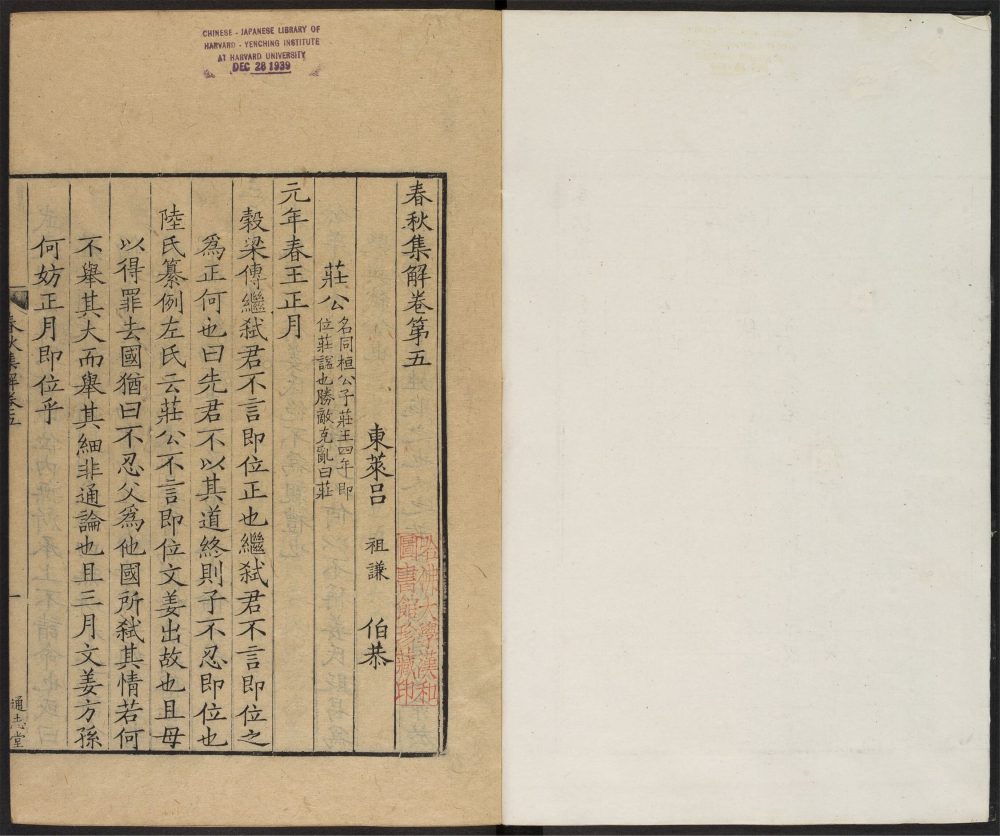 CHINESE - JAPANESE LIBRARY OF
HARVARD - YENCHING INSTITUTE
AT HARVARD UNIVERSITY
DEC 28 1939
春秋集解卷第五
東萊呂 祖謙 伯恭
哈佛大學漢和
圖書館珍藏印
莊公名同桓公子莊王四年即
位莊諡也勝敵克亂曰莊
元年春王正月
穀梁傳繼弑君不言即位正也繼弑君不言即位之
爲正何也曰先君不以其道終則子不忍即位也
陸氏纂例左氏云莊公不言即位文姜出故也且母
以得罪去國猶曰不忍父爲他國所弑其情若何
不舉其大而舉其細非通論也且三月文姜方孫
何妨正月即位乎
春秋集解卷五
一
通志堂